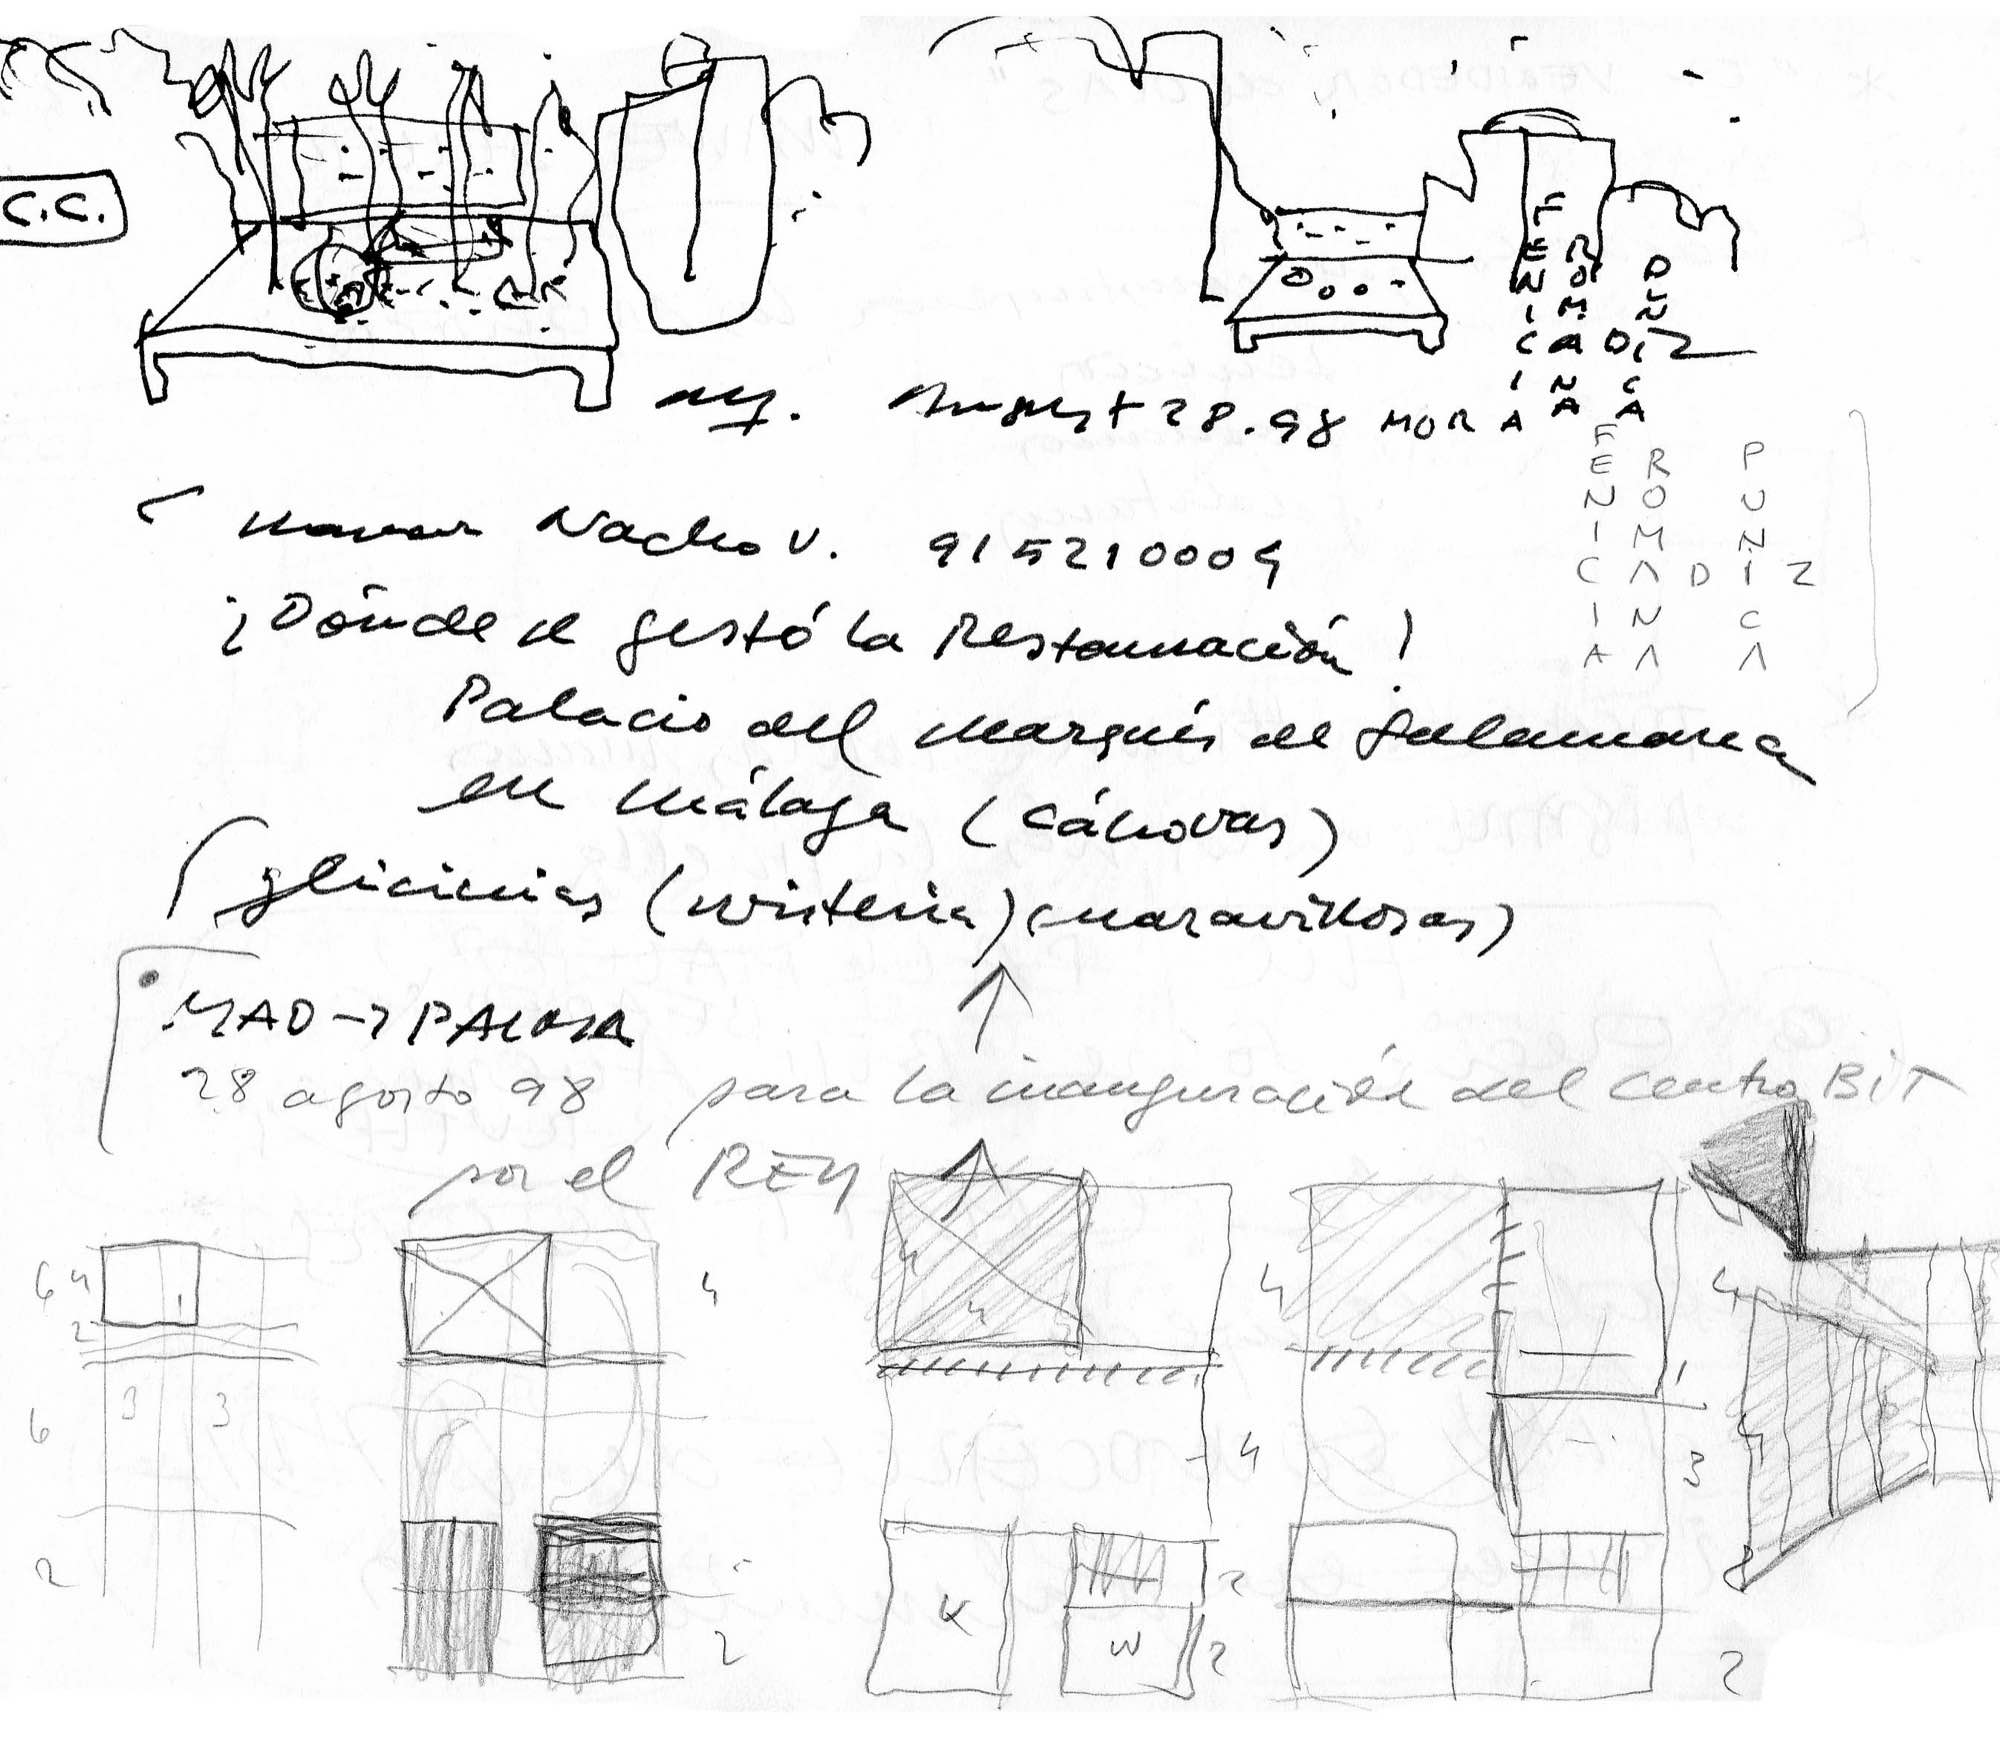 C.C.
August 28.98 MORA
FENICIA
ROMANA
PUNICA
DIZ
FENICIA
ROMANA
PUNICA
D Z
Nacho V. 915210004
¡Dónde se gestó la Restauración!
Palacio del Marqués de Salamanca
en Málaga (Cánovas)
glicinias (wisteria) (maravillosas)
MAD → PALMA
28 agosto 98 para la inauguración del Centro BIT
por el REY
6 4
2
3 3
6
2
4
2
4
4
4
4
K
W
2
2
4
1
3
2